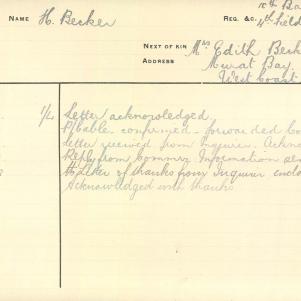 NAME H. Becker
10th Ba
REG. &C. 4th Field
NEXT OF KIN Mrs Edith Beck
ADDRESS Murat Bay,
West Coast
1/4 Letter acknowledged.
P/Cable confirmed - forwarded
Letter received from Inquirer. Ackno
Reply from Commr. Information sen
Letter of thanks from Inquirer enclo
Acknowledged with thanks